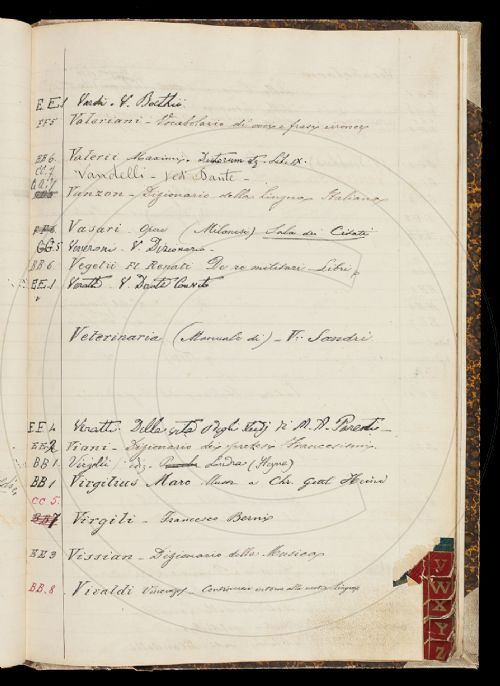 EE.1 Vardi - V. Boethio
EE5 Valeriani - Vocabolario di voci e frasi erronee
BB6. Valerii Maximi - Dictorum etc Lib. IX.
CC.7 Vandelli - Vedi Dante -
Vanzon - Dizionario della lingua Italiana
Vasari - Opere (Milanesi) Sala dei Citati
GG.5 Veneroni - V. Dizionario -
BB6. Vegetii Fl Renati De re militari - Libri
EE.1 Veratti - V. Dante Convito
"
Veterinaria (Manuale di) - V. Sondri
EE4 Veratti Della vita degli studj di M. A. Parenti -
EE2 Viani - Dizionario dei pretesi Francesismi
BB1. Virgilii ediz. Londra (Heyne)
BB1 Virgilius Maro Chr. Gottl Heine
CC 5.
BB7 Virgili - Francesco Berni
EE3 Vissian - Dizionario della Musica
BB.8 Vivaldi Vincenzo - Controversie intorno alla nostra lingua
V
W
X
Y
Z